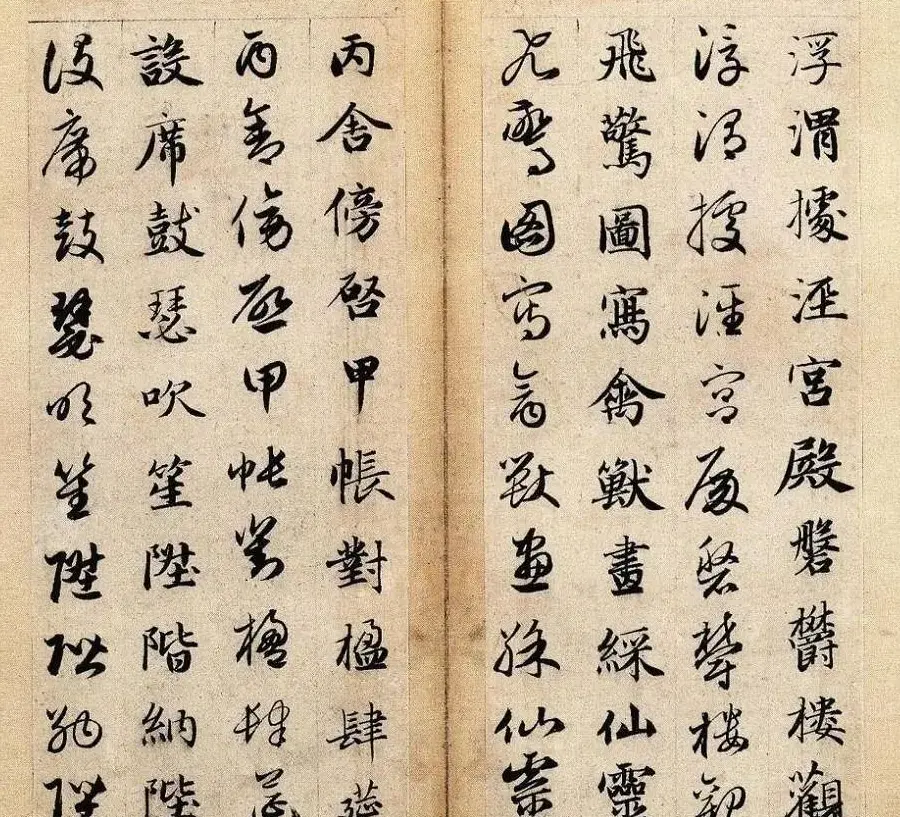 浮渭據涇宮殿磐鬱樓觀
浮渭據涇宮殿磐鬱樓觀
飛驚圖寫禽獸畫綵仙靈
飛驚圖寫禽獸畫綵仙靈
丙舍傍啓甲帳對楹肆筵
丙舍傍啓甲帳對楹肆筵
設席鼓瑟吹笙陞階納陛
設席鼓瑟吹笙陞階納陛